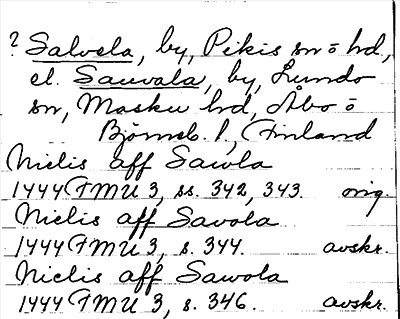 ? Salvela, by, Pikis sn o hd,
el. Sauvala, by, Lundo
sn, Masku hd, Åbo o
Björneb. l, Finland
Niclis aff Sawla
1444 FMU 3, ss. 342, 343. orig.
Niclis aff Savola
1444 FMU 3, s. 344. avskr.
Niclis aff Sawola
1444 FMU 3, s. 346. avskr.